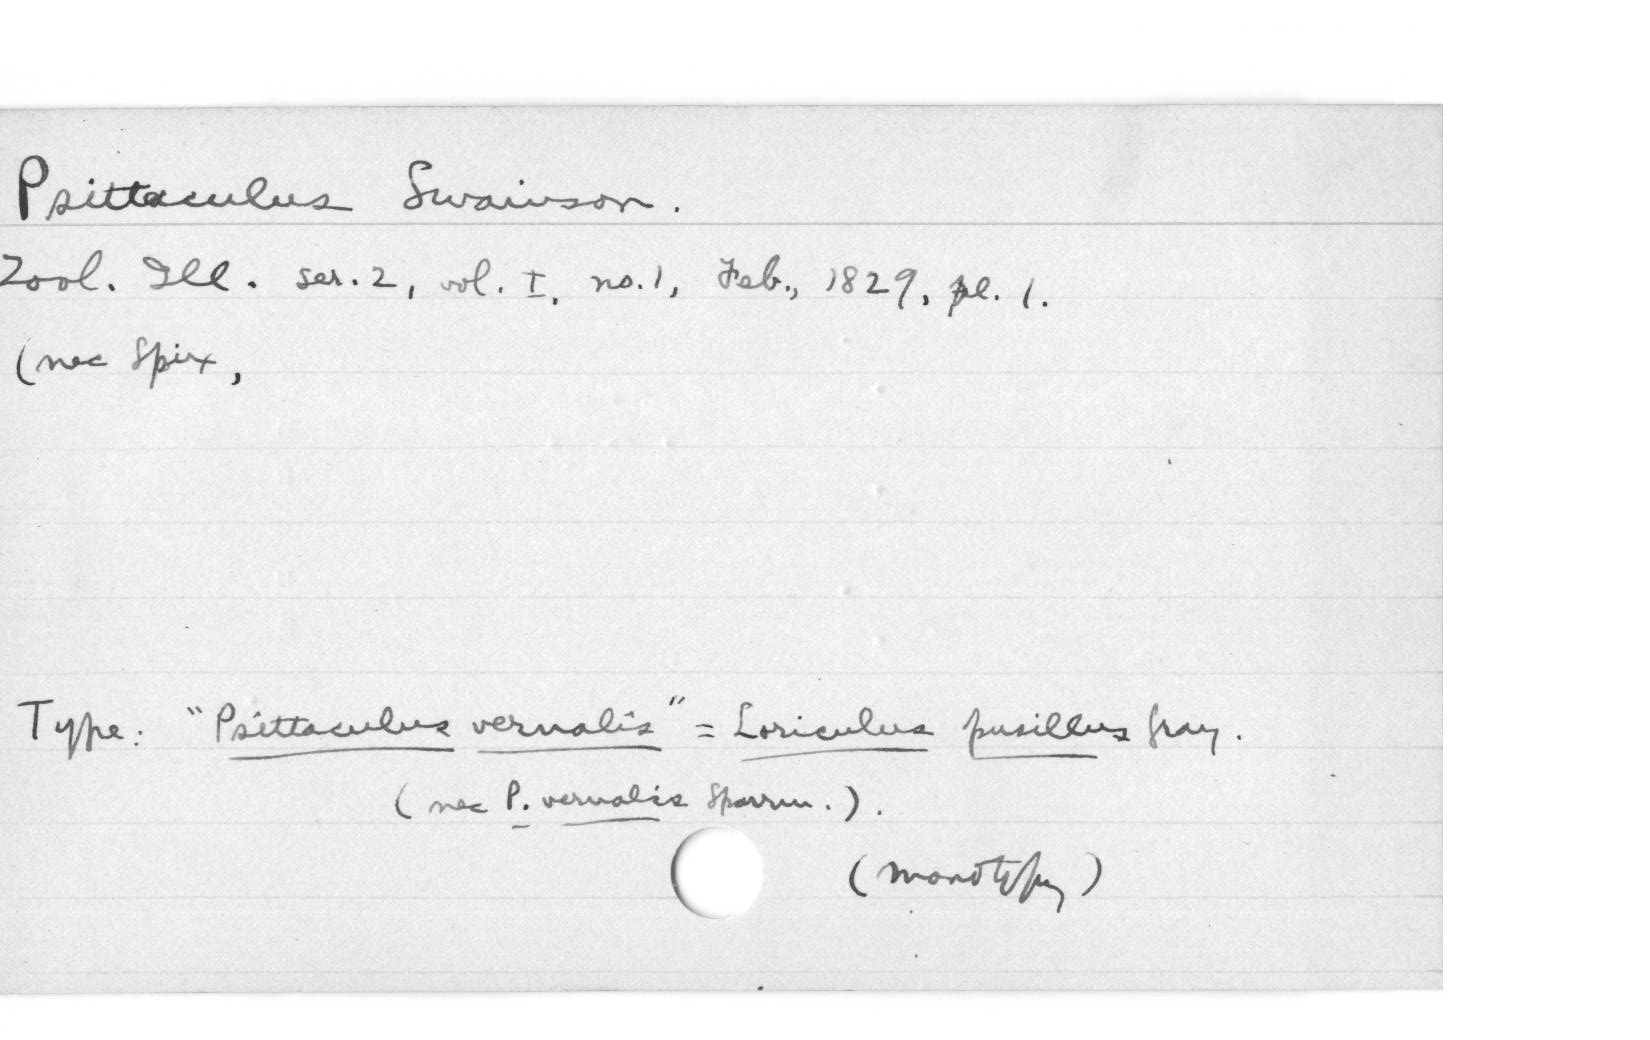 Psittaculus Swainson.
Zool. Ill. ser. 2, vol. I, no. 1, Feb., 1829, pl. 1.
(nec Spix,
Type: "Psittaculus vernalis" = Loriculus pusillus Gray.
(nec P. vernalis Sparrm.).
(monotypy)